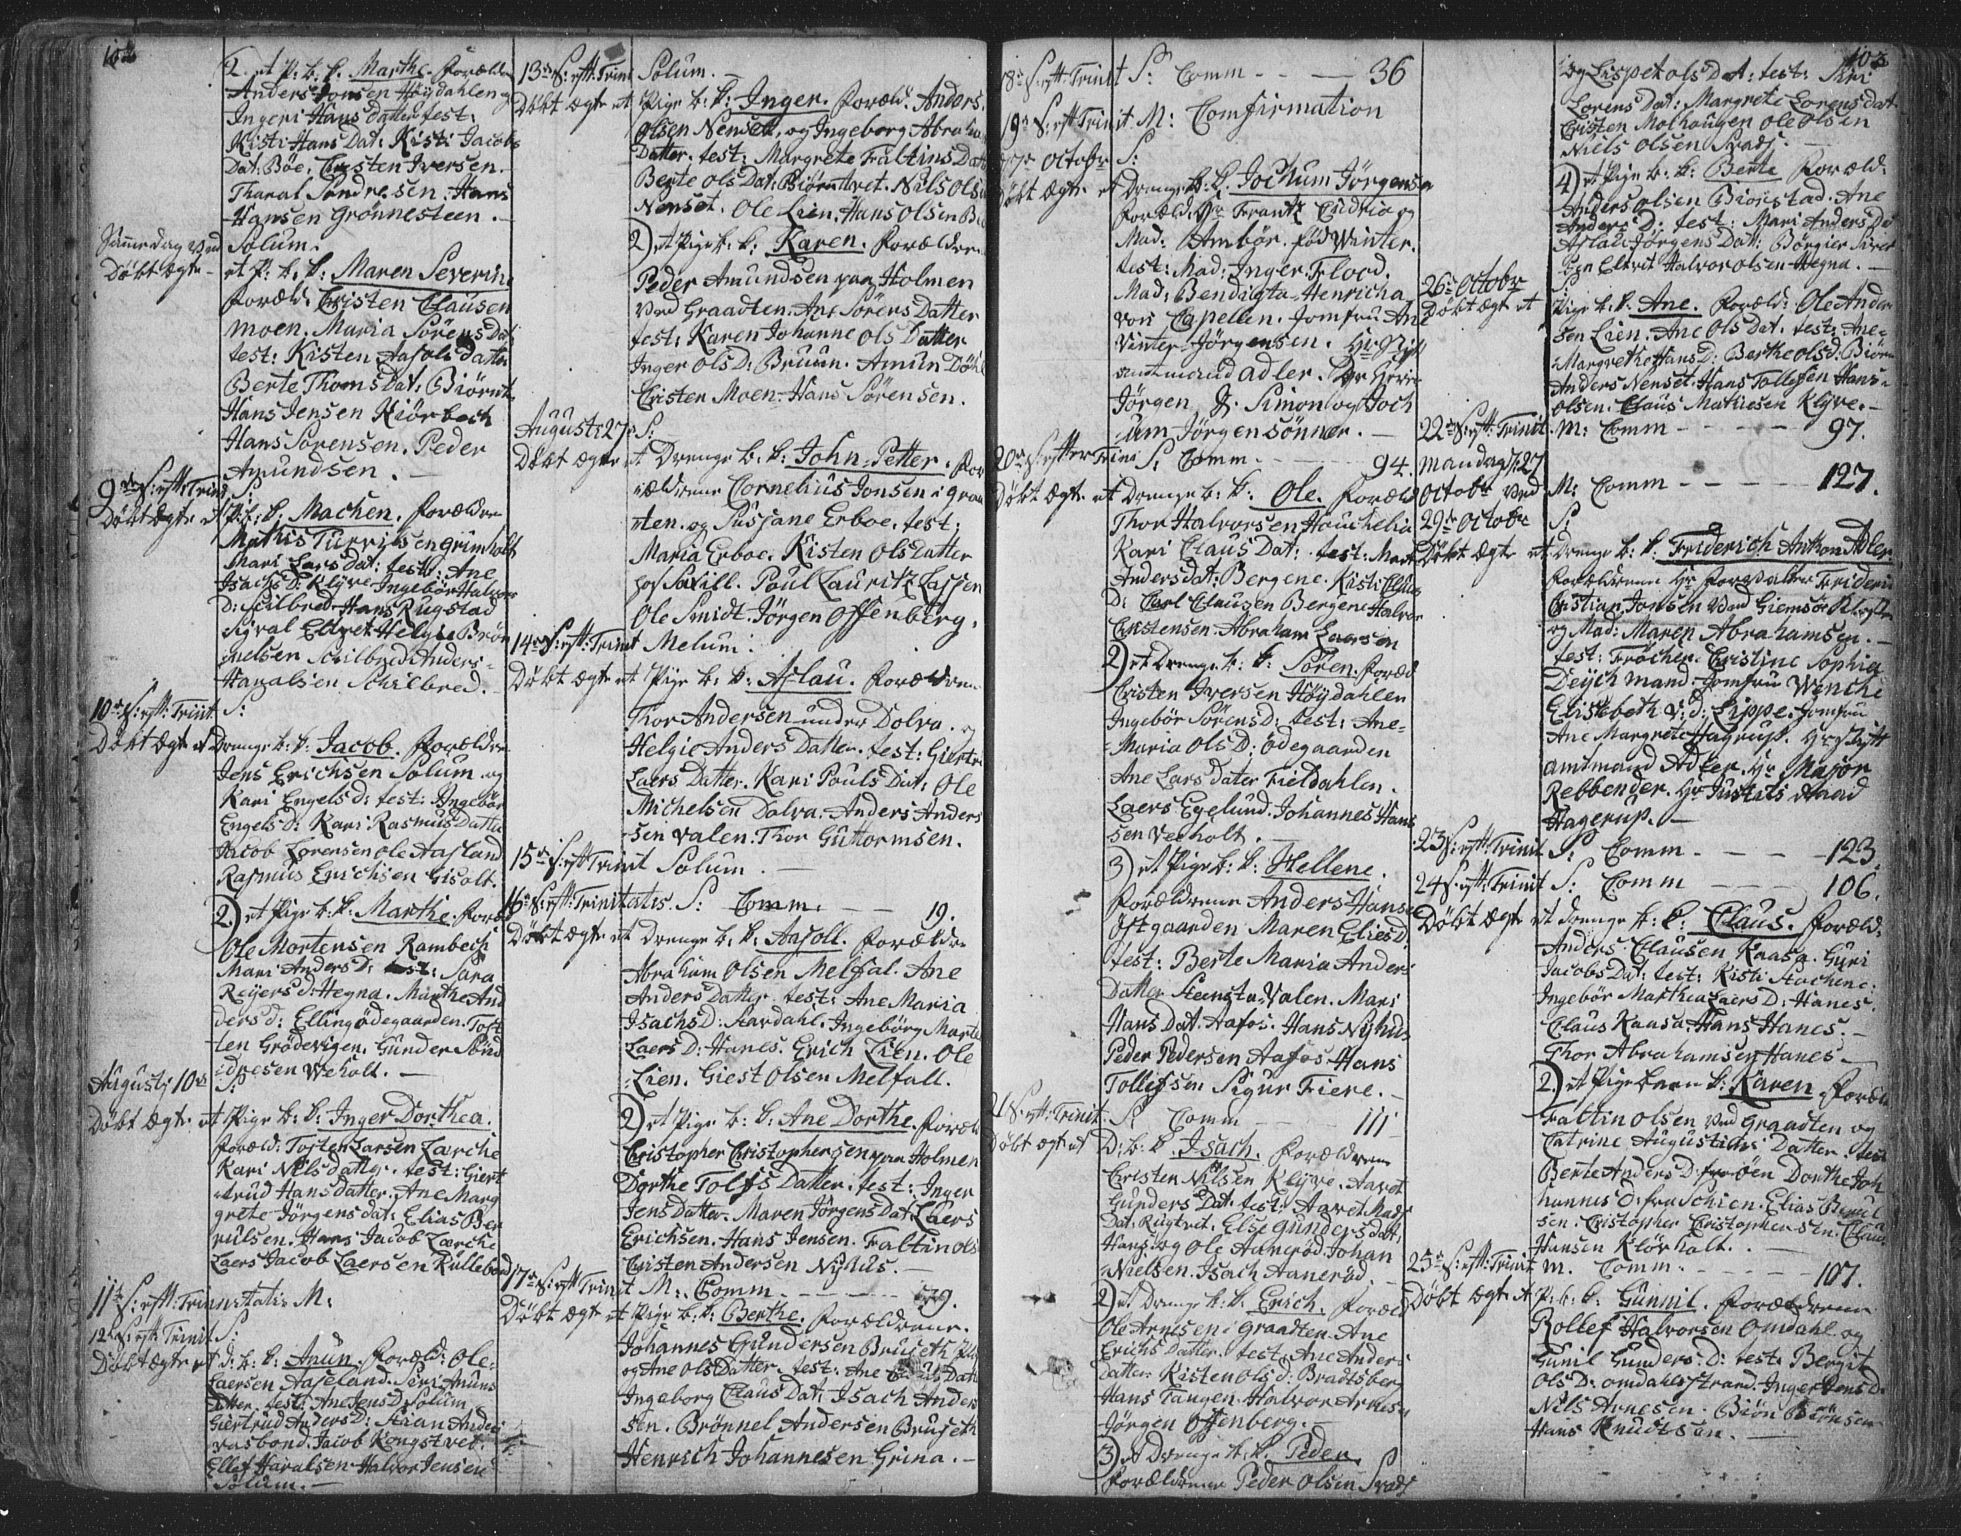 102
2. et P. b. k. Marthe. Forælder
Anders Jonsen Høydahlen og
Ingeri Hans datter test:
Kisti Hans Dat: Kisti Jacobs
Dat: Bøe. Cristen Iversen.
Tharal Sondresen. Hans
Hansen Grønnesteen.
Sammedag ved Solum.
Døbt Ægte et P. b. k: Maren Severine
Foræld: Cristen Clausen
Moen. Maria Sørens Dat
test: Kisten Aasols datter
Berte Thoms Dat: Biørnt
Hans Jensen Kiørbech
Hans Sørensen. Peder
Amundsen.
9de S: eft: Trinit S:
Døbt Ægte et Pi: k: Machen. Forældre
Mathis Turrissen Grimholt
Mari Lars dat: test: Ane
Isachs D: Klyve Ingebör Halvors
D: Skilbred Hans Rugstad
Sigval Eltvet Helgie Brön
nielsen Skilbred Anders
Haralsen Schilbred.
10de S: eft: Trinit. S:
Døbt Ægte et Drenge b: k: Jacob. Forældre
Jens Erichsen Solum og
Kari Engels D: test: Ingebör
Engels D: Kari Rasmus Datter
Jacob Lorensen Ole Aasland
Rasmus Erichsen Gisolt.
2) et Pige b: k: Marthe. Foræld
Ole Mortensen Rambech
Mari Anders D: test: Sara
Reyers D: Hegna. Marthe And
ders d: Elling ødegaarden. Tost
ten Grødevigen. Gunder Sönd
dresen Weholt.
Augustj 10de S:
Døbt Ægte et Pige b: k: Inger Dorthea.
Foræld: Tosten Larsen Larche
Kari Nils datter. test: Giert
trud Hans datter. Ane Marg
grete Jörgens dat: Elias Ber
rulsen. Hans Jacob Larche
Laers Jacob Laersen Kullebond
11te S: eft: Trinitatis M:
12te S: eft: Trinit S:
Døbt Ægte et d: b: k: Anun. Foræld: Ole
Laersen Aaseland. Siri Anuns
Datter. test: Ane Jens D Solum
Giertrud Anders D: Kiean Anders
vasbond. Jacob Kongstvet
Ellef Haralsen Halvor Jensen
Solum.
13de S: eft: Trinit Solum.
Døbt Ægte et Pige b: k: Inger. Foræld. Anders
Olsen Nenset, og Ingeborg Abraha
Datter. test: Margrete Faltins Datt
Berte Ols Dat: Biørntvet. Nils Olse
Nenset. Ole Lien. Hans Olsen
2) et Pige b: k: Karen. Forældre
Peder Amundsen paa Holmen
ved Graadten. Ane Sörens Datter
test: Karen Johanne Ols Datter
Inger Ols D: Bruun. Amun Döhl
Cristen Moen. Hans Sörensen.
Augusti 27de S:
Døbt Ægte et Drenge b. k: John Petter. For
ældrene Cornelius Jonsen i Graa
ten. og Susjane Erboe. test:
Maria Erboe. Kisten Ols Datter
Poul Lauritz Lassen
Ole Smidt. Jörgen Offenberg.
14de S: eft: Trinit Melum:
Døbt Ægte et Pige b. k: Aslau. Forældren
Thor Andersen under Dolva. og
Helgie Anders Datter. test: Giertr
Laers Datter. Kari Pouls Dat: Ole
Michelsen Dolva. Anders Anders
sen Valen. Thor Guttormsen.
15de S: eft Trinit Solum.
16de S: eft: Trinitatis. S: Comm. 19.
Døbt Ægte et Drenge b. k. Aasoll. Forældre
Abraham Olsen Melfal. Ane
Anders Datter. test: Ane Maria
Isachs D: Aardahl. Ingebörg Marte
Laers D: Hanes. Erich Lien. Ole
Lien. Giest Olsen Melfall.
2) et Pige b: k: Ane Dorthe. Foræld
Cristopher Cristophersen paa Holmen
Dorthe Tolfs Datter. test: Inger
Jens Datter. Maren Jörgens Dat: Laers
Erichsen. Hans Jensen. Faltin Ols
Cristen Andersen Nyhus.
17de S: eft: Trinit M: Comm. 79.
Døbt Ægte et Pige b. k: Berthe. Forældrene.
Johannes Gundersen Bruseth
og Ane Ols Datter. test: Ane Datt
Ingeborg Claus Dat: Isach Anders
sen. Brönnel Andersen Bruseth
Henrich Johannesen Grina.
18de S: eft: Trinit S: Comm 36
19de S: eft: Trinit. M: Comfirmation
17de Octobr S:
Døbt Ægte et Drenge b. k. Jochum Jörgensen
Foræld. Hr Frantz Cudrio og
Mad: Ambör. Fød Winter.
test: Mad: Inger Flood.
Mad: Bendigta Henricha
von Capellen. Jomfru Ane
Vinter Jörgensen. Hr Stift
amtmand Adler. Hr
Jörgen J. Simon og Joch
um Jörgensönner.
20de S: efter Trini S: Comm 94.
Døbt Ægte et Drenge b. k. Ole. Foræld
Thor Halvorsen Houchelia
Kari Claus Dat: test: Mart
Anders dat: Bergene. Kisti Claus
D: Carl Clausen Bergene Halvor
Cristensen. Abraham Laersen
2) et Drenge b. k: Sören. Foræld
Cristen Iversen Höydahlen
Ingebör Sörens D: test: Ane
Maria Ols D: ödegaarden
Ane Lars dater Fieldahlen.
Laers Egelund. Johannes Hans
sen Veholt.
3) et Pige b: k: Hellene.
Forældrene Anders Hansen
Östgaarden Maren Elies D.
test: Berte Maria Anders
Datter Steensta-Valen. Mari
Hans Dat. Aafos. Hans Nyhus
Peder Pedersen Aafos Hans
Tollefsen Sigur Fiere.
21 S: eft: Trinit. S: Comm 111
Døbt Ægte et D: b: k. Isach. Forældrene
Cristen Nilsen Klyve. Aaret
Gunders Dat. test: Aaret Mads
Dat. Rugtvet. Else Gunders datt
Hans og Ole Aanerød Johan
Nielsen. Isach Aanerød.
2) et Drenge b: k: Erich. Foræld
Ole Arnesen i Graadten. Ane
Erichs Datter. test. Ane Anders
datter Kisten Ols d: Bradsberg
Hans Tangen. Halvor Arnese
Jörgen Offenberg.
3) et Drenge b. k. Peder.
Forældrene Peder Olsen Svads
103
og Lispet Ols Dat: test: Siri
Lorens Dat: Margrete Lorens dat
Cristen Molhaugen Ole Olsen
Niels Olsen Svads.
4) et Pige b: k: Berte Foræld:
Anders Olsen Biörstad. Ane
Anders D: test: Mari Anders D:
Aslau Jörgens Dat: Börgier Siver
sen Eltvit Halvor Olsen Hegna.
26de Octobr S:
Døbt Ægte et Pige b. k: Ane. Foræld: Ole Ander
sen Lien. Ane Ols Dat. test: Ane
Margrethe Hans D: Berthe Ols d. Biörn
Anders Nenset. Hans Tollefsen Hans
Olsen. Claus Mathiesen Klyve.
22de S: eft: Trinit. M: Comm 97.
Mandag d: 27
Octobr ved M: Comm 127.
29de Octobr S:
Døbt Ægte et Drenge b: k. Friderich Anthon Adler.
Forældrene Hr Forvalter Frideric
Cristian Jonsen ved Giemsøe Kloster
og Mad: Maren Abrahamsen.
test: Fröchen Cristine Sophia
Deichmand. Jomfru Wenche
Elisebeth v: d: Lippe. Jomfru
Ane Margrete Hagerup. Hr Stift
amtmand Adler. Hr Major
Rebbender. Hr Justits Raad
Hagerup.
23 S: eft: Trinit S: Comm 123.
24 S: eft: Trinit S: Comm 106.
Døbt Ægte et Drenge b. k. Claus. Foræld:
Anders Clausen Kaasa. Guri
Jacobs Dat: test: Kisti Aachene:
Ingebör Marthea Laers D: Hanes.
Claus Kaasa Hans Hanes.
Thor Abrahamsen Hanes
2) et Pige barn k: Karen. Foræld
Faltin Olsen ved Graadten og
Catrine Augustinus Datter. test
Berte Anders D: fra öen Dorthe Joh
hannis D: fra Schien. Elias Beruil
sen. Cristopher Cristophersen. Claus
Hansen Klørholt.
25de S: eft: Trinit M. Comm. 107.
Døbt Ægte et P: b. k: Gunnil. Forældrene
Rollef Halvorsen Omdahl og
Gunil Gunders D: test: Bergit
Ols D: Omdahlsstrand. Inger Jens D:
Nils Arnesen. Biön Biönsen
Hans Knudtsen.